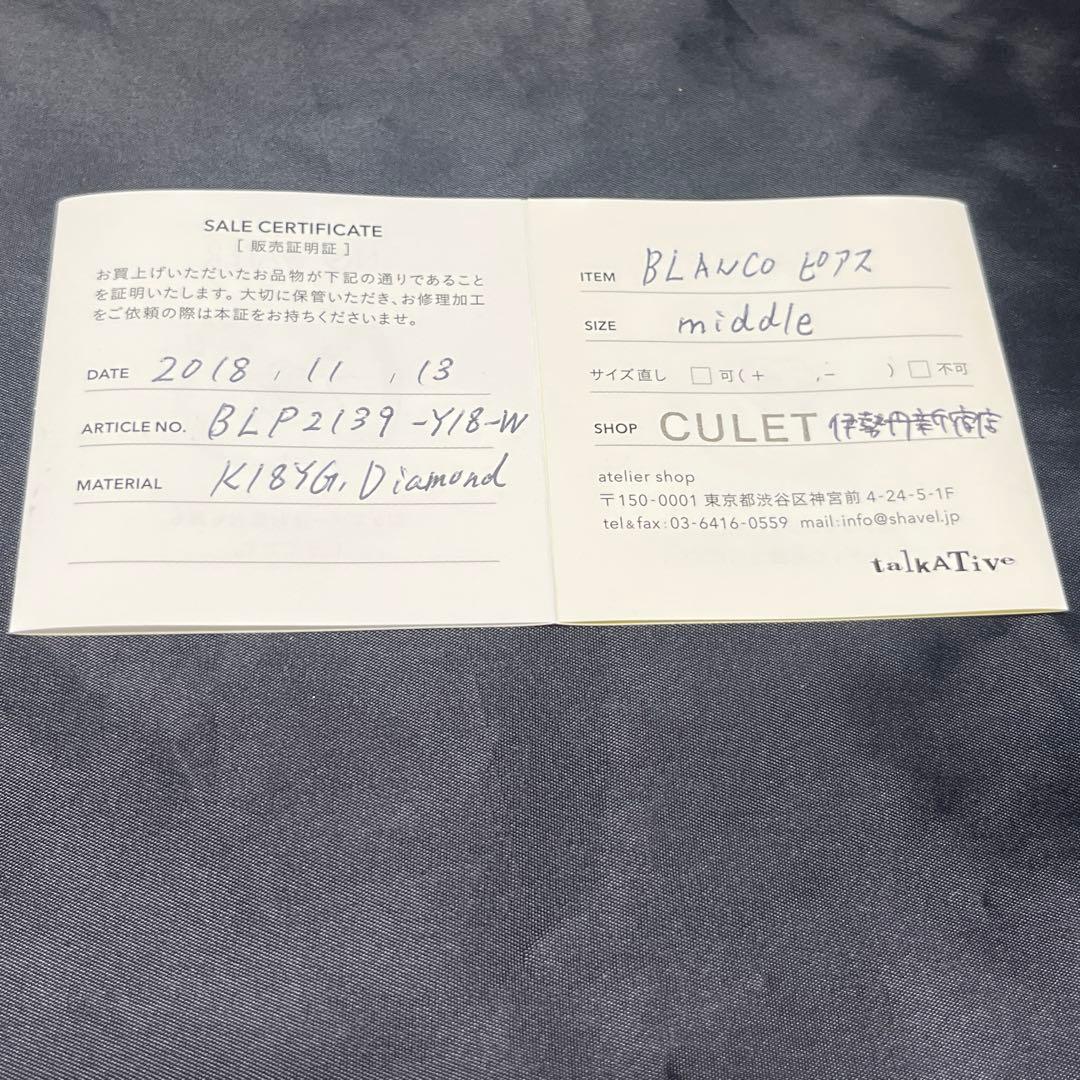 SALE CERTIFICATE
[ 販売証明証 ]
お買上げいただいたお品物が下記の通りであること
を証明いたします。大切に保管いただき、お修理加工
をご依頼の際は本証をお持ちくださいませ。
DATE 2018 , 11 , 13
ARTICLE NO. BLP2139-Y18-W
MATERIAL K18YG, Diamond
ITEM BLANCO ピアス
SIZE middle
サイズ直し □ 可(+ ,- ) □ 不可
SHOP CULET 伊勢丹新宿店
atelier shop
〒150-0001 東京都渋谷区神宮前 4-24-5-1F
tel&fax:03-6416-0559 mail:info@shavel.jp
talkATive